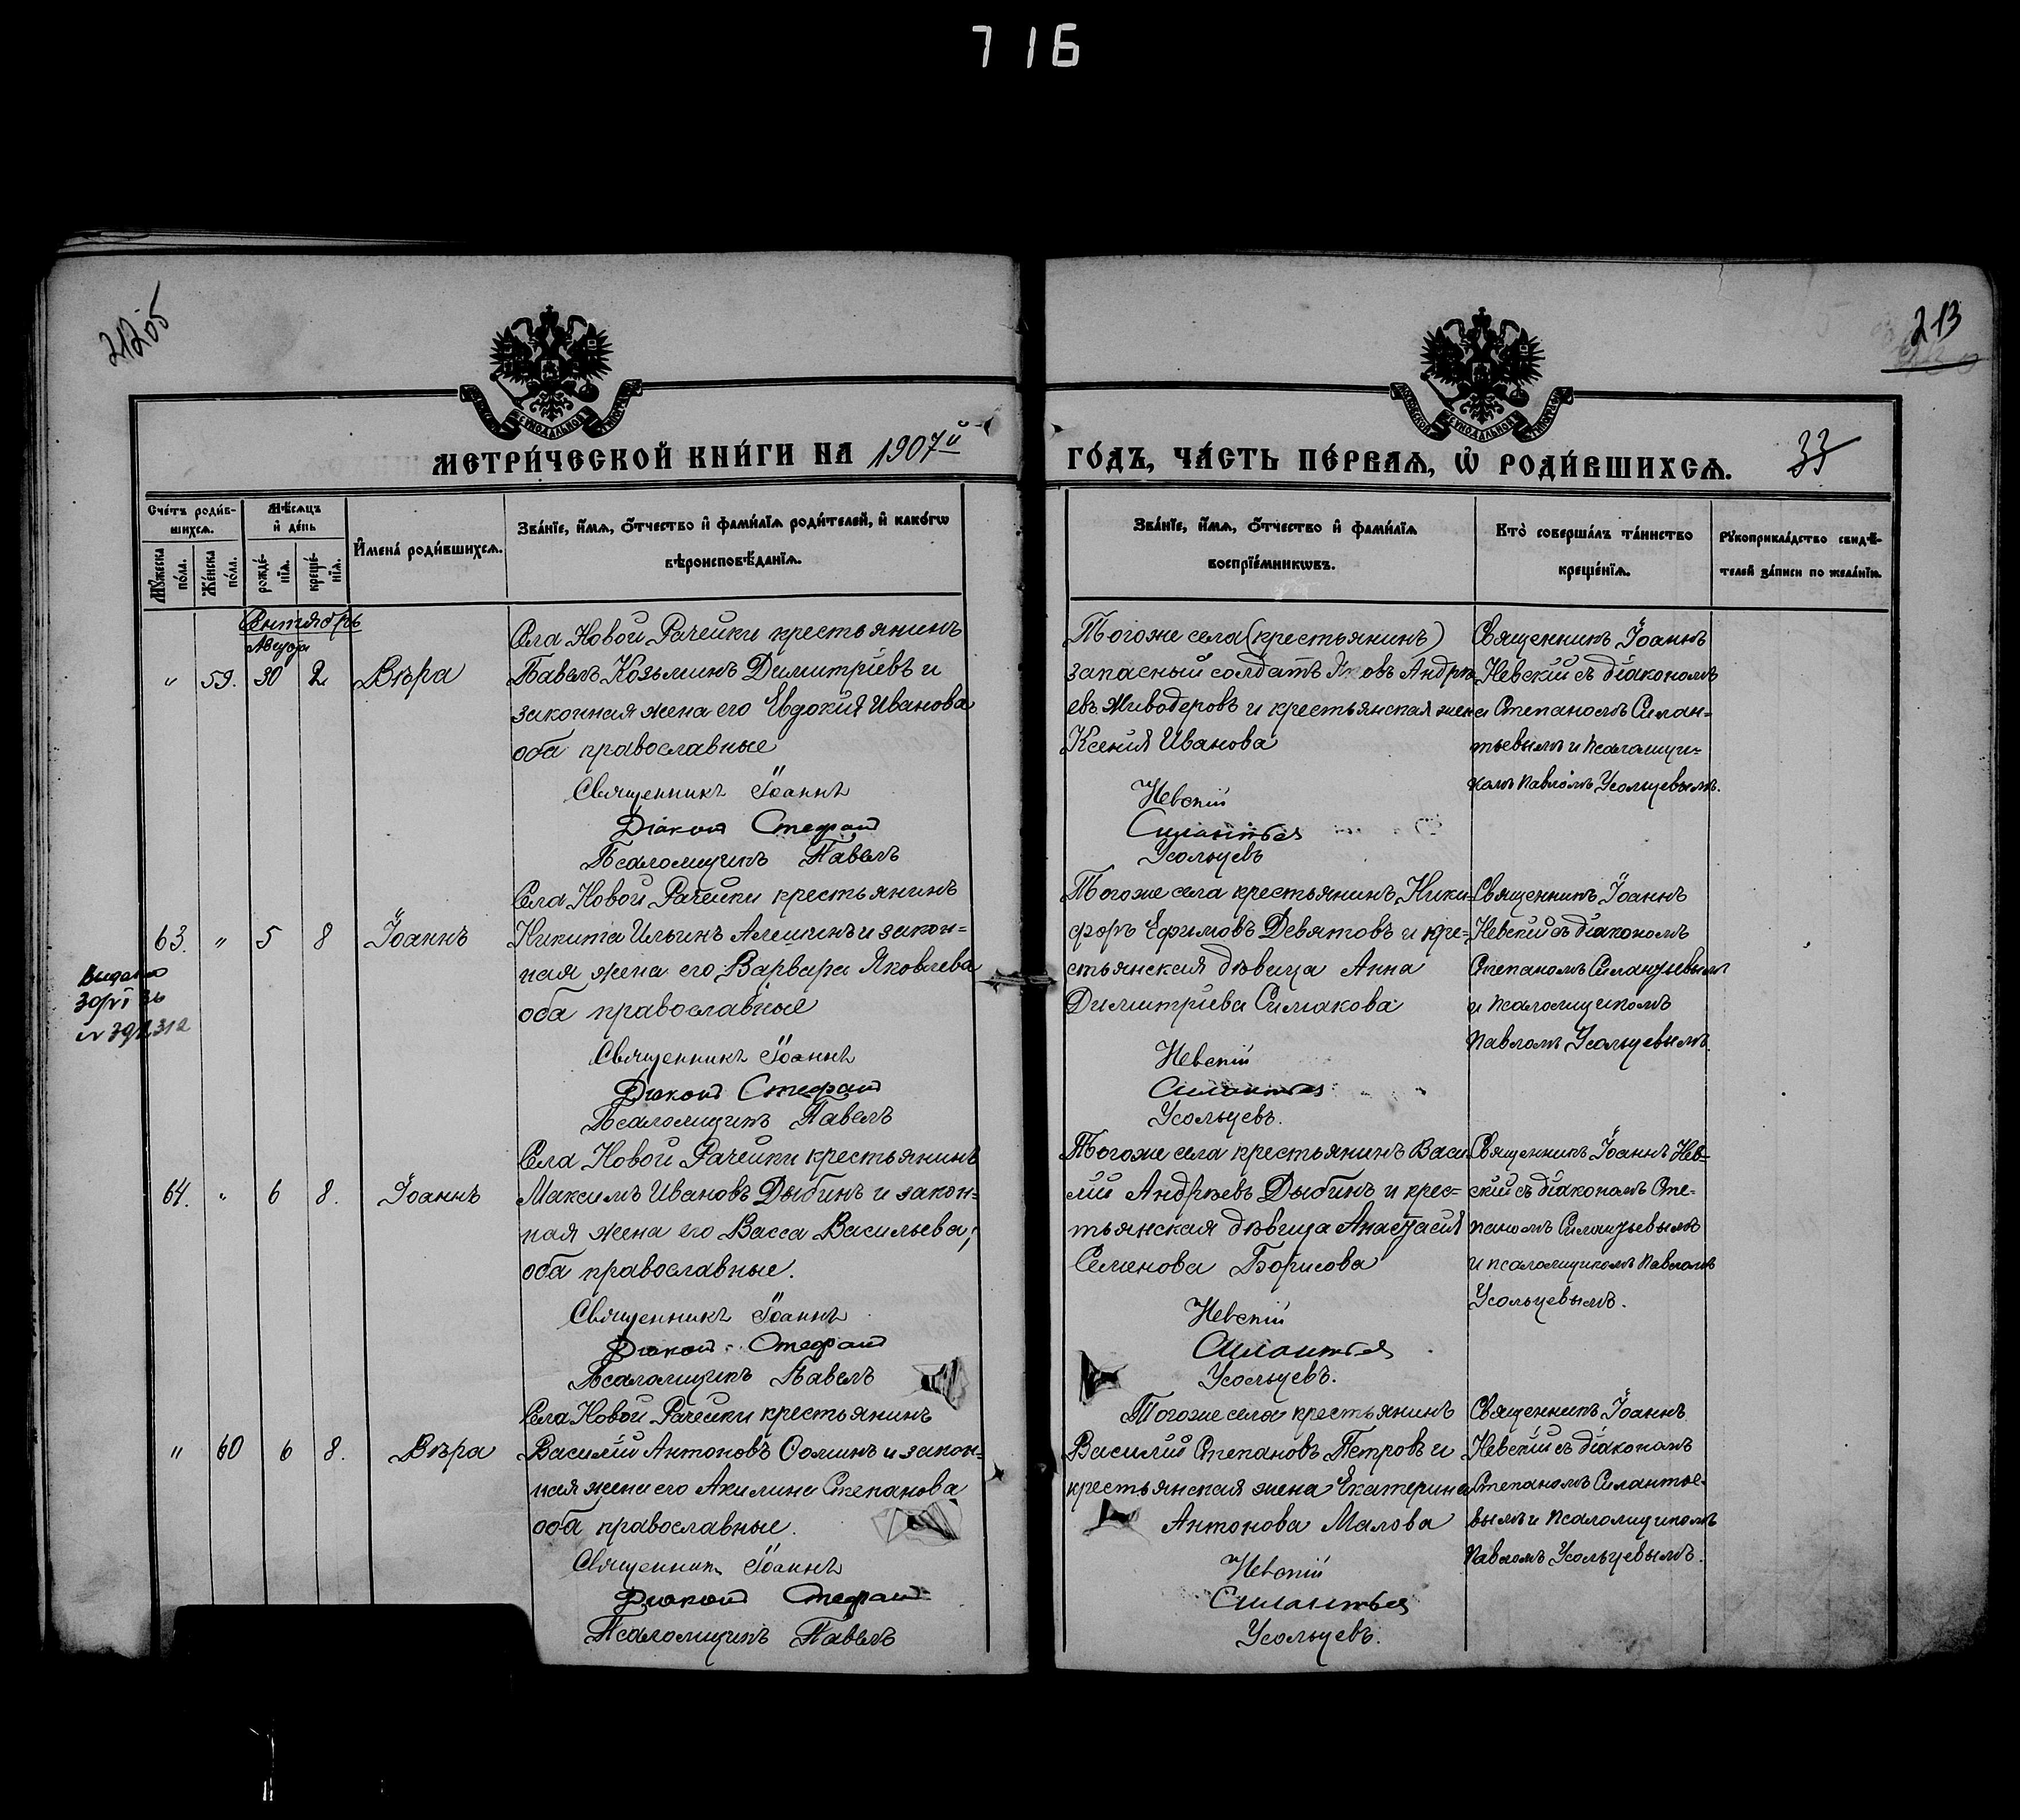 716
212об
213
МЕТРИ́ЧЕСКОЙ КНИ́ГИ НА 1907й
ГО́ДЪ, ЧА́СТЬ ПЕ́РВАѦ, Ѽ РОДИ́ВШИХСѦ.
33
Сче́тъ роди́в-
шихсѧ.
Мѣ́сѧцъ
и҆ де́нь
И҆мена̀ роди́вшихсѧ.
Зва́нїе, и҆́мѧ, ѻ҆́тчество и҆ фами́лїѧ роди́телей, и҆ како́гѡ
вѣроисповѣ́данїѧ.
Мꙋ́жеска
по́ла.
Же́нска
по́ла.
рожде́-
нїѧ.
креще́-
нїѧ.
Зва́нїе, и҆́мѧ, ѻ҆́тчество и҆ фами́лїѧ
воспрїе́мникѡвъ.
Кто̀ соверша́лъ та́инство
креще́нїѧ.
Рꙋкоприкла́дство свидѣ́-
телей за́писи по жела́нїю.
Сентябрь
Августа
" 59. 30 2 Вѣра
Села Новой Рачейки крестьянинъ
Павелъ Козьминъ Димитріевъ и
законная жена его Евдокія Иванова
оба православные
Священникъ Іоаннъ
Діакон Стефан
Псаломщикъ Павелъ
Тогоже села (крестьянинъ)
запасный солдатъ Андрѣ
евъ Живодеровъ и крестьянская жена
Ксенія Иванова
Невскій
Силантьев
Усольцевъ
Священникъ Іоаннъ
Невскій съ діакономъ
Степаномъ Силан=
тьевымъ и псаломщи=
комъ Павломъ Усольцевымъ.
63. " 5 8 Іоаннъ
Выдано
Села Новой Рачейки крестьянинъ
Никита Ильинъ Алешинъ и закон=
ная жена его Варвара Яковлева
оба православные
Священникъ Іоаннъ
Діакон Стефан
Псаломщикъ Павелъ
Тогоже села крестьянинъ Ники=
форъ Ефимовъ Девятовъ и кре=
стьянская дѣвица Анна
Димитріева Симакова
Невскій
Силантьев
Усольцевъ.
Священникъ Іоаннъ
Невскій съ діакономъ
Степаномъ Силантьевымъ
и псаломщикомъ
Павломъ Усольцевымъ.
64. " 6 8. Іоаннъ
Села Новой Рачейки крестьянинъ
Максимъ Ивановъ Дыбинъ и закон=
ная жена его Васса Васильева,
оба православные.
Священникъ Іоаннъ
Діакон Стефан
Псаломщикъ Павелъ
Тогоже села крестьянинъ Васи
лій Андрѣевъ Дыбинъ и крес=
тьянская дѣвица Анастасія
Семенова Борисова
Невскій
Силантьев
Усольцевъ.
Священникъ Іоаннъ Нев=
скій съ діакономъ Сте=
паномъ Силантьевымъ
и псаломщикомъ Павломъ
Усольцевымъ.
" 60 6 8. Вѣра
Села Новой Рачейки крестьянинъ
Василій Антоновъ Ѳоминъ и закон=
ная жена его Акилина Степанова
оба православные.
Священникъ Іоаннъ
Діакон Стефан
Псаломщикъ Павелъ
Тогоже села крестьянинъ
Василій Степановъ Петровъ и
крестьянская жена Екатерина
Антонова Малова
Невскій
Силантьев
Усольцевъ.
Священникъ Іоаннъ
Невскій съ діакономъ
Степаномъ Силантье=
вымъ и псаломщикомъ
Павломъ Усольцевымъ.